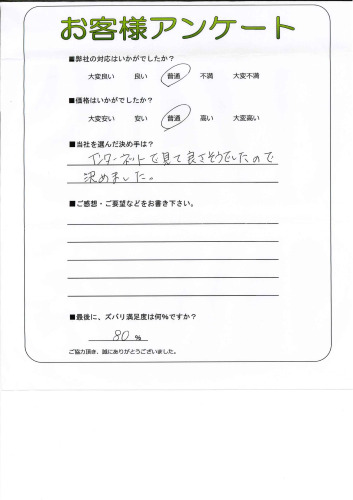 お客様アンケート
■弊社の対応はいかがでしたか?
大変良い 良い 普通 不満 大変不満
■価格はいかがでしたか?
大変安い 安い 普通 高い 大変高い
■当社を選んだ決め手は?
インターネットで見て良さそうでしたので
決めました。
■ご感想・ご要望などをお書き下さい。
■最後に、ズバリ満足度は何%ですか?
80 %
ご協力頂き、誠にありがとうございました。